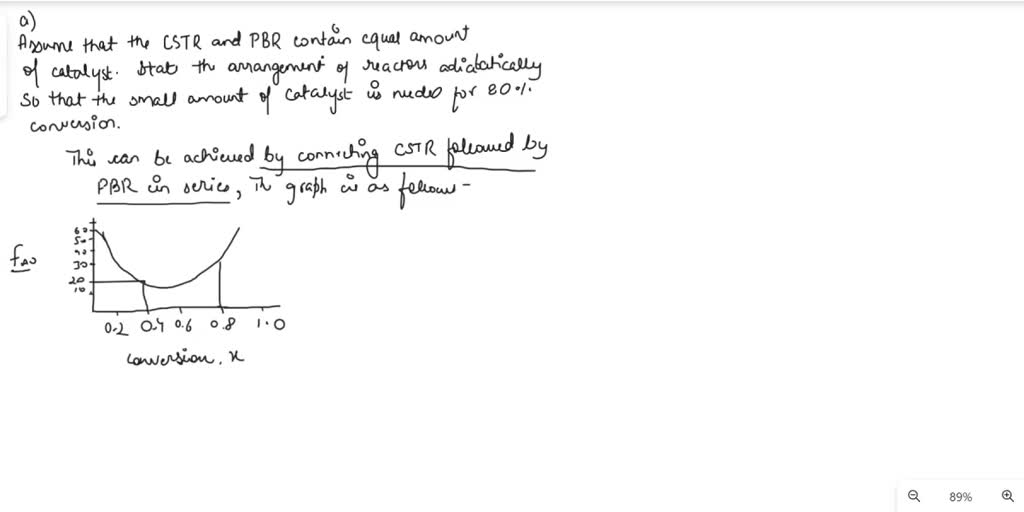 a)
Assume that the CSTR and PBR contain equal amount
of catalyst. State the arrangement of reactors adiabatically
So that the small amount of catalyst is needed for 80%
conversion.
This can be achieved by connecting CSTR followed by
PBR in series, The graph is as follows -
60
50
30
20
10
0.2 0.4 0.6 0.8 1.0
conversion, x
89%